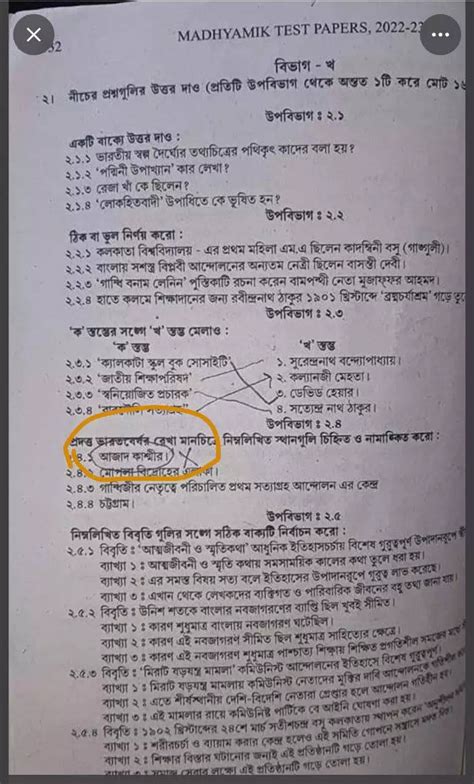 MADHYAMIK TEST PAPERS, 2022-23
বিভাগ - খ
২। নীচের প্রশ্নগুলির উত্তর দাও (প্রতিটি উপবিভাগ থেকে অন্তত ১টি করে মোট ১৬
উপবিভাগ ঃ ২.১
একটি বাক্যে উত্তর দাও :
২.১.১ ভারতীয় স্বল্প দৈর্ঘ্যের তথ্যচিত্রের পথিকৃৎ কাদের বলা হয়?
২.১.২ 'পদ্মিনী উপাখ্যান' কার লেখা?
২.১.৩ রেজা খাঁ কে ছিলেন?
২.১.৪ 'লোকহিতবাদী' উপাধিতে কে ভূষিত হন?
উপবিভাগ ঃ ২.২
ঠিক বা ভুল নির্ণয় করো :
২.২.১ কলকাতা বিশ্ববিদ্যালয় - এর প্রথম মহিলা এম.এ ছিলেন কাদম্বিনী বসু (গাঙ্গুলী)।
২.২.২ বাংলায় সশস্ত্র বিপ্লবী আন্দোলনের অন্যতম নেত্রী ছিলেন বাসন্তী দেবী।
২.২.৩ 'গান্ধি বনাম লেনিন' পুস্তিকাটি রচনা করেন বামপন্থী নেতা মুজাফ্‌ফর আহমদ।
২.২.৪ হাতে কলমে শিক্ষাদানের জন্য রবীন্দ্রনাথ ঠাকুর ১৯০১ খ্রিস্টাব্দে 'ব্রহ্মচর্যাশ্রম' গড়ে
উপবিভাগ ঃ ২.৩
'ক' স্তম্ভের সঙ্গে 'খ' স্তম্ভ মেলাও :
'ক' স্তম্ভ 'খ' স্তম্ভ
২.৩.১ 'ক্যালকাটা স্কুল বুক সোসাইটি' ১. সুরেন্দ্রনাথ বন্দ্যোপাধ্যায়।
২.৩.২ 'জাতীয় শিক্ষাপরিষদ' ২. কল্যানজী মেহতা।
২.৩.৩ 'স্বনিয়োজিত প্রচারক' ৩. ডেভিড হেয়ার।
২.৩.৪ ৪. সত্যেন্দ্র নাথ ঠাকুর।
উপবিভাগ ঃ ২.৪
প্রদত্ত ভারতবর্ষের রেখা মানচিত্রে নিম্নলিখিত স্থানগুলি চিহ্নিত ও নামাঙ্কিত করো :
২.৪.১ আজাদ কাশ্মীর।
২.৪.২ মোপলা বিদ্রোহের এলাকা।
২.৪.৩ গান্ধিজীর নেতৃত্বে পরিচালিত প্রথম সত্যাগ্রহ আন্দোলন এর কেন্দ্র
২.৪.৪ চট্টগ্রাম।
উপবিভাগ ঃ ২.৫
নিম্নলিখিত বিবৃতি গুলির সঙ্গে সঠিক বাক্যটি নির্বাচন করো :
২.৫.১ বিবৃতি : 'আত্মজীবনী ও স্মৃতিকথা' আধুনিক ইতিহাসচর্চায় বিশেষ গুরুত্বপূর্ণ উপাদানরূপে
ব্যাখ্যা ১ : আত্মজীবনী ও স্মৃতি কথায় সমসাময়িক কালের কথা তুলে ধরা হয়।
ব্যাখ্যা ২ : এর সমস্ত বিষয় সত্য বলে ইতিহাসের উপাদানরূপে গুরুত্ব লাভ করেছে।
ব্যাখ্যা ৩ : এখান থেকে লেখকদের ব্যক্তিগত ও পারিবারিক জীবনের বহু তথ্য জানা যায়।
২.৫.২ বিবৃতি : উনিশ শতকে বাংলার নবজাগরণের ব্যাপ্তি ছিল খুবই সীমিত।
ব্যাখ্যা ১ : কারণ শুধুমাত্র বাংলায় নবজাগরণ ঘটেছিল।
ব্যাখ্যা ২ : কারণ এই নবজাগরণ সীমিত ছিল শুধুমাত্র সাহিত্যের ক্ষেত্রে।
ব্যাখ্যা ৩ : কারণ এই নবজাগরণ শুধুমাত্র পাশ্চাত্য শিক্ষায় শিক্ষিত প্রগতিশীল সমাজের মধ্যে
২.৫.৩ বিবৃতি : 'মিরাট ষড়যন্ত্র মামলা' কমিউনিস্ট আন্দোলনের ইতিহাসে বিশেষ গুরুত্বপূর্ণ।
ব্যাখ্যা ১ : মিরাট ষড়যন্ত্র মামলায় কমিউনিস্ট নেতাদের মুক্তির দাবি আন্দোলনকে
ব্যাখ্যা ২ : এতে শীর্ষস্থানীয় দেশি-বিদেশি নেতারা গ্রেপ্তার হলে আন্দোলন গতিহীন হয়।
ব্যাখ্যা ৩ : এই মামলার রায়ে কমিউনিস্ট পার্টিকে বে আইনি ঘোষণা করা হয়।
২.৫.৪ বিবৃতি : ১৯০২ খ্রিস্টাব্দের ২৪শে মার্চ সতীশচন্দ্র বসু কলকাতায় স্থাপন করেন
ব্যাখ্যা ১ : শরীরচর্চা ও ব্যায়াম করার কেন্দ্র হলেও এই সমিতি গোপনে
ব্যাখ্যা ২ : শিক্ষার বিস্তার ঘটানোর জন্যই এই প্রতিষ্ঠানটি গড়ে তোলা হয়।